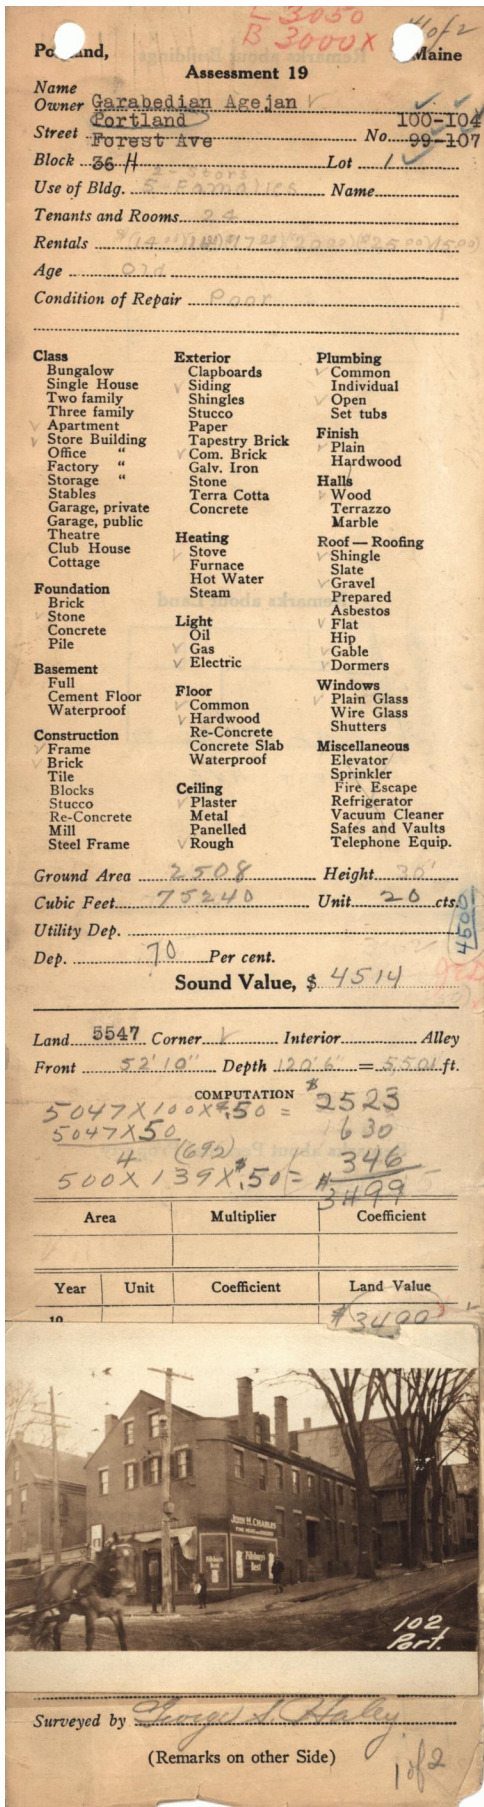 L 3050
B 3000 X
1 of 2
Portland, Maine
Assessment 19
Name
Owner Garabedian Agejan
Portland 100-104
Street Forest Ave No. 99-107
Block 36 H Lot 1
2-Stors
Use of Bldg. 5-Famalies Name
Tenants and Rooms 24
Rentals
Age Old
Condition of Repair Poor
Class
Bungalow
Single House
Two family
Three family
Apartment
Store Building
Office "
Factory "
Storage "
Stables
Garage, private
Garage, public
Theatre
Club House
Cottage
Foundation
Brick
Stone
Concrete
Pile
Basement
Full
Cement Floor
Waterproof
Construction
Frame
Brick
Tile
Blocks
Stucco
Re-Concrete
Mill
Steel Frame
Exterior
Clapboards
Siding
Shingles
Stucco
Paper
Tapestry Brick
Com. Brick
Galv. Iron
Stone
Terra Cotta
Concrete
Heating
Stove
Furnace
Hot Water
Steam
Light
Oil
Gas
Electric
Floor
Common
Hardwood
Re-Concrete
Concrete Slab
Waterproof
Ceiling
Plaster
Metal
Panelled
Rough
Plumbing
Common
Individual
Open
Set tubs
Finish
Plain
Hardwood
Halls
Wood
Terrazzo
Marble
Roof — Roofing
Shingle
Slate
Gravel
Prepared
Asbestos
Flat
Hip
Gable
Dormers
Windows
Plain Glass
Wire Glass
Shutters
Miscellaneous
Elevator
Sprinkler
Fire Escape
Refrigerator
Vacuum Cleaner
Safes and Vaults
Telephone Equip.
Ground Area 2508 Height 30'
Cubic Feet 75240 Unit 20 cts.
4500
Utility Dep.
Dep. 70 Per cent.
Sound Value, $ 4514
Land 5547 Corner Interior Alley
Front 52' 10" Depth 120' 6" = 5501 ft.
COMPUTATION
5047 X 100 X $.50 = $2523
5047 X 50 630
4 (692) 346
500 X 139 X $.50 = $3499
Area Multiplier Coefficient
Year Unit Coefficient Land Value
19 $3400
JOHN H. CHARLES
Pillsbury's Best
Pillsbury's Best
102
Port.
Surveyed by George S. Haley
(Remarks on other Side)
1 of 2